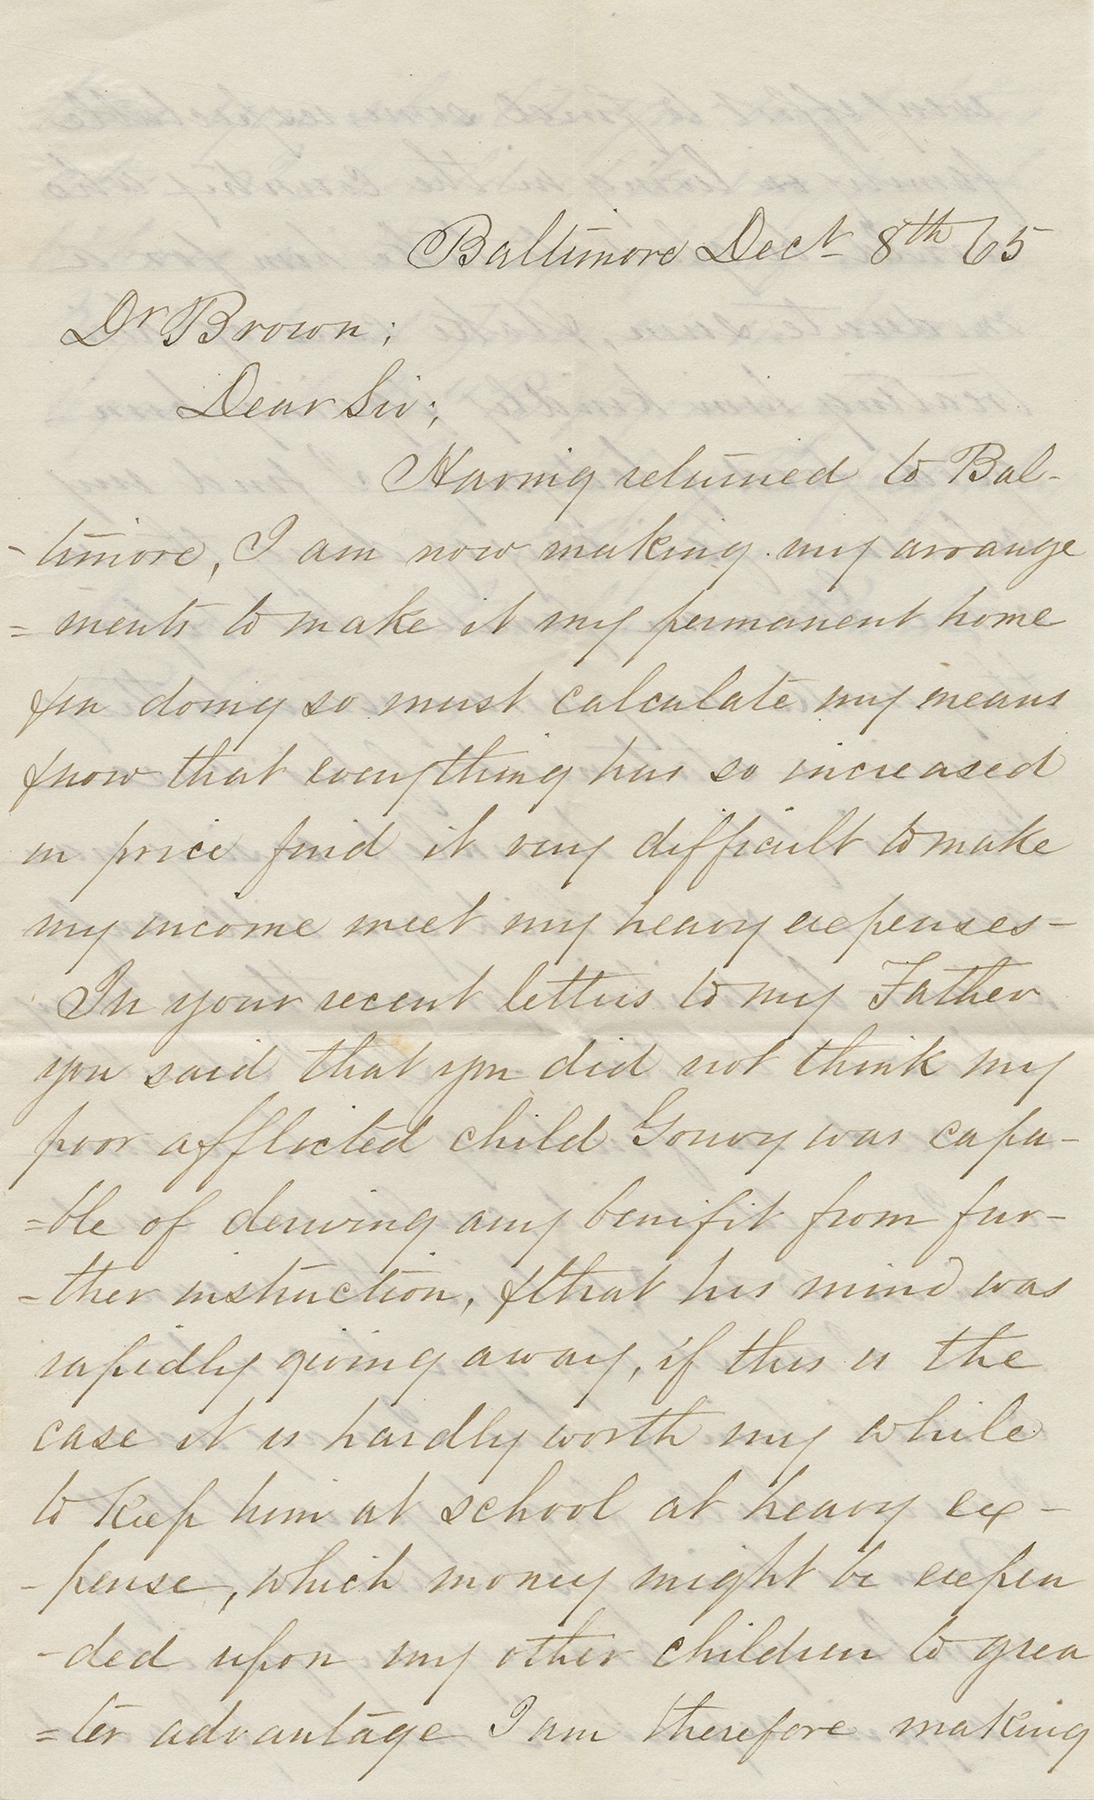 Baltimore Dect 8th 65
Dr Brown;
Dear Sir;
Having returned to Bal-
-timore, I am now making my arrange
=ments to make it my permanent home
& in doing so must calculate my means
& now that everything has so increased
in price find it very difficult to make
my income meet my heavy expenses-
In your recent letters to my Father
you said that you did not think my
poor afflicted child was capa-
=ble of deriving any benifit from fur-
-ther instruction, & that his mind was
rapidly giving away, if this is the
case it is hardly worth my while
to keep him at school at heavy ex-
-pense, which money might be expen
-ded upon my other children to grea
=ter advantage I am therefore making